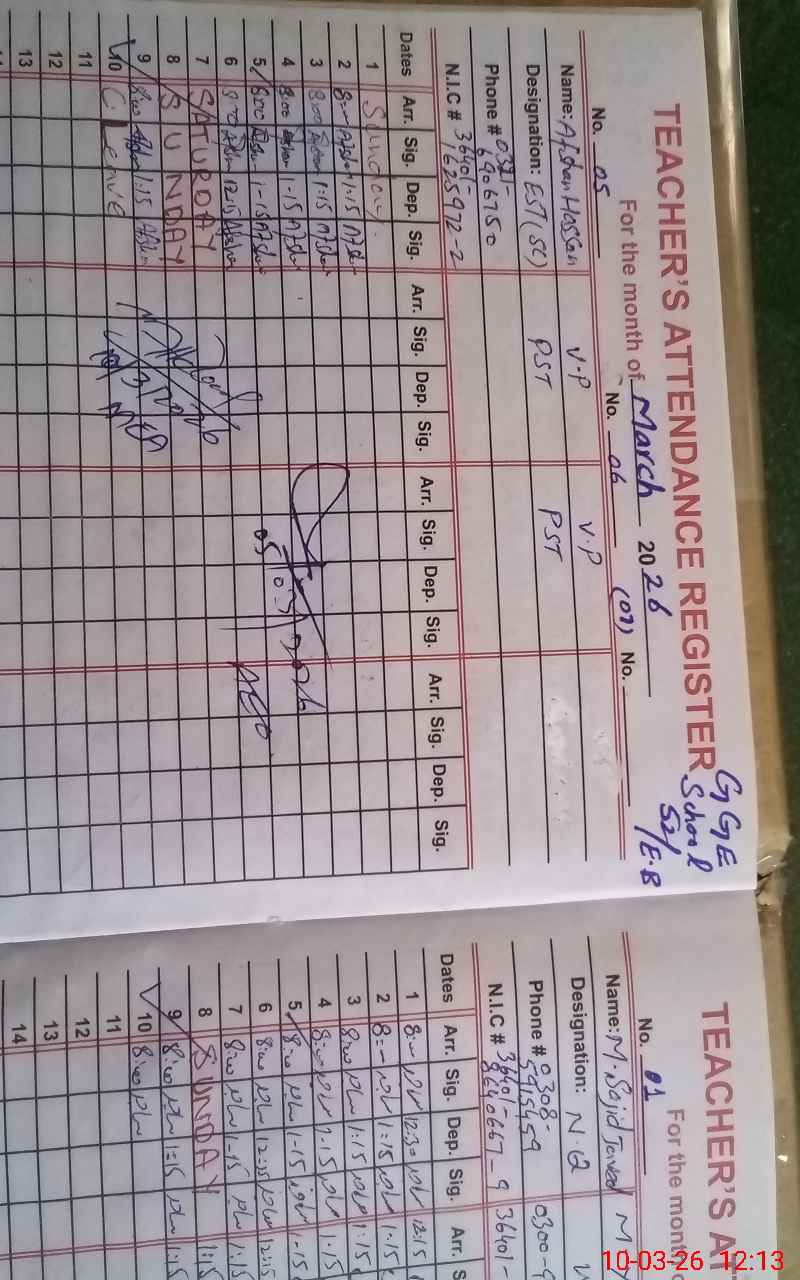 TEACHER'S ATTENDANCE REGISTER
GGE School 52/E.B
For the month of March 2026
No. 05
No. 06
(07) No.
Name: Afshan Hassan
V.P
V.P
Designation: EST(SC)
PST
PST
Phone # 0321-6906750
N.I.C # 36401-1625972-2
Dates Arr. Sig. Dep. Sig. Arr. Sig. Dep. Sig. Arr. Sig. Dep. Sig. Arr. Sig. Dep. Sig.
1 Sunday
2 8:00 Afshan 1:15 Afshan
3 8:00 Afshan 1:15 Afshan
4 8:00 Afshan 1-15 Afshan
5 8:00 Afshan 1-15 Afshan
6 8:00 Afshan 12:15 Afshan
7 SATURDAY
8 SUNDAY
9 8:00 Afshan 1:15 Afshan
10 C Leave
11
12
13
AEO
TEACHER'S AT
For the month
No. 01
Name: M. Sajid Javed M
Designation: N.Q
Phone # 0308-5915459 0300-9
N.I.C # 36401-8640667-9 36401-
Dates Arr. Sig. Dep. Sig. Arr. S
1 8:00 12:30 12:15
2 8:00 1:15 1:15
3 8:00 1:15 1:15
4 8:00 1-15 1:15
5 8:00 1-15 1-15
6 8:00 12:15 12:15
7 8:00 1-15 1:15
8 SUNDAY 1:15
9 8:00 1:15 1:15
10 8:00
11
12
13
14
10-03-26 12:13